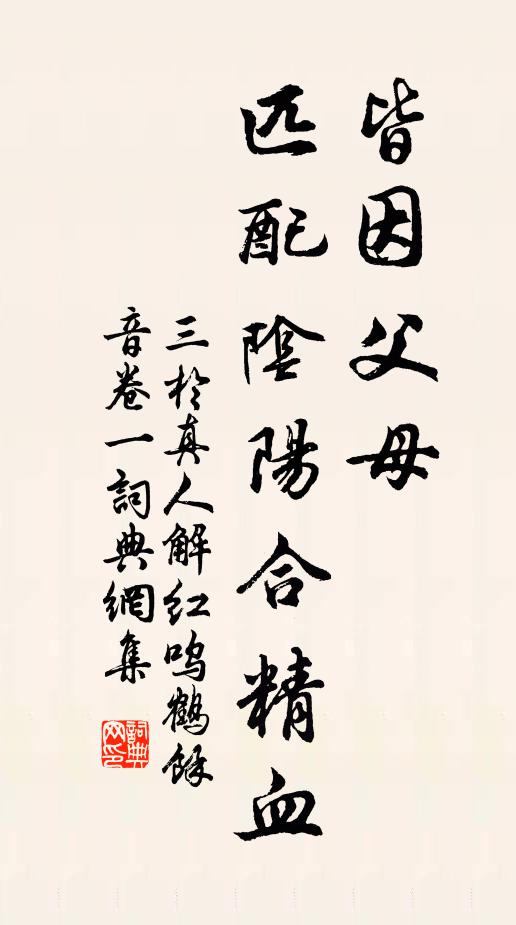 皆因父母
匹配陰陽合精血
三於真人解红鸣鶴餘
音卷一詞典網集
詞典
网印